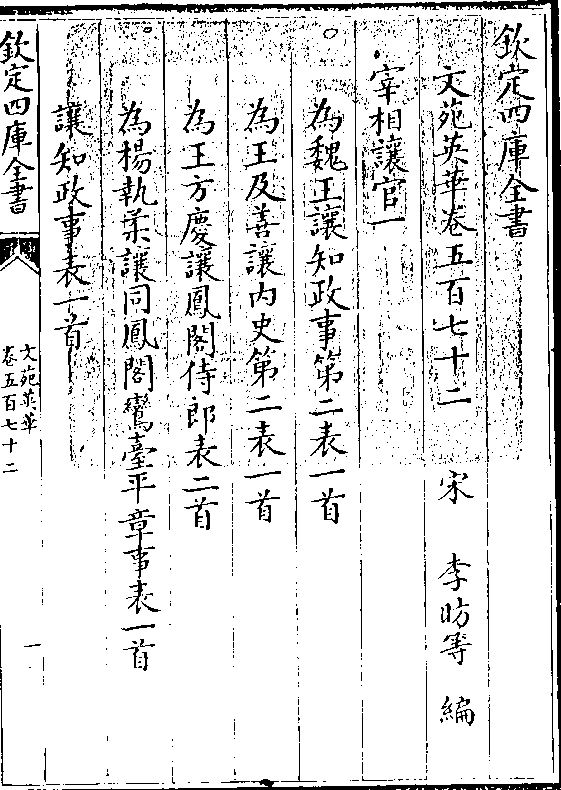 欽定四庫全書
文苑英華卷五百七十二 宋 李昉等 編
宰相讓官一
為魏王讓知政事第二表一首
為王及善讓內史第二表一首
為王方慶讓鳳閣侍郎表二首
為楊執柔讓同鳳閣鸞臺平章事表一首
讓知政事表一首
欽定四庫全書
文苑英華
卷五百七十二
一